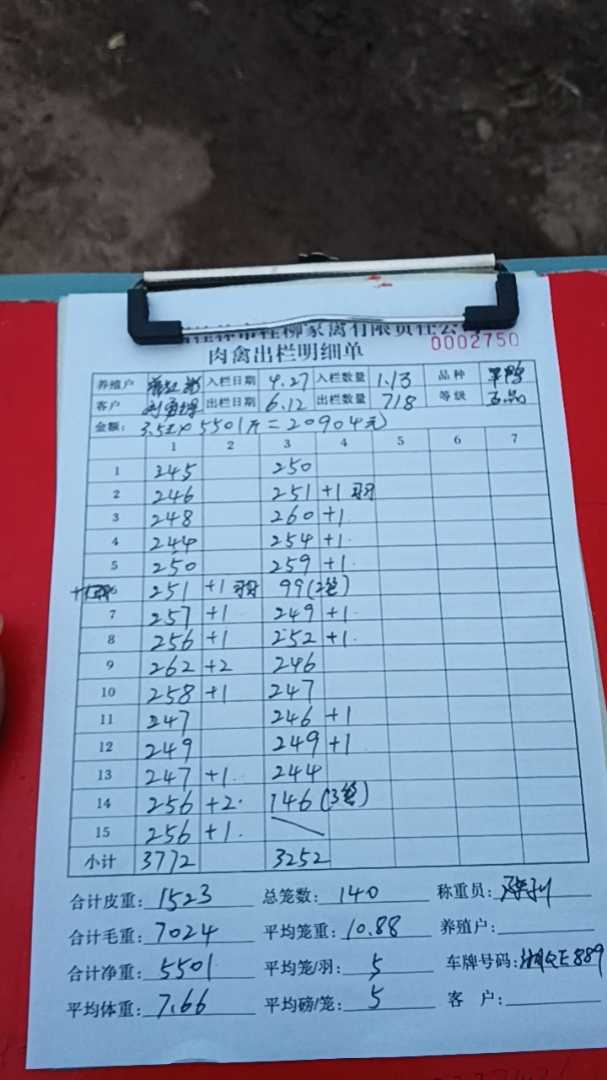 桂林市桂柳家禽有限责任公司
肉禽出栏明细单
0002750
养殖户 入栏日期 4.27 入栏数量 1.13 品种
客户 出栏日期 6.12 出栏数量 718 等级
金额: 5501斤=20904元
1 2 3 4 5 6 7
1 245 250
2 246 251 +1羽
3 248 260 +1
4 244 254 +1.
5 250 259 +1
251 +1羽 99(2笼)
7 257 +1 249 +1
8 256 +1 252 +1.
9 262 +2 246
10 258 +1 247
11 247 246 +1
12 249 249 +1
13 247 +1. 244
14 256 +2. 146(3笼)
15 256 +1.
小计 3772 3252
合计皮重: 1523 总笼数: 140 称重员:
合计毛重: 7024 平均笼重: 10.88 养殖户:
合计净重: 5501 平均笼/羽: 5 车牌号码: E889
平均体重: 7.66 平均磅/笼: 5 客 户: